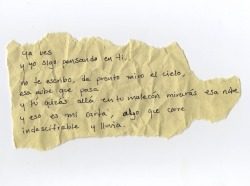 ya ves
y yo sigo pensando en ti...
no te escribo, de pronto miro el cielo,
esa nube que pasa
y tú quizás allá en tu malecón mirarás esa nube
y eso es mi carta, algo que corre
indescifrable y lluvia.